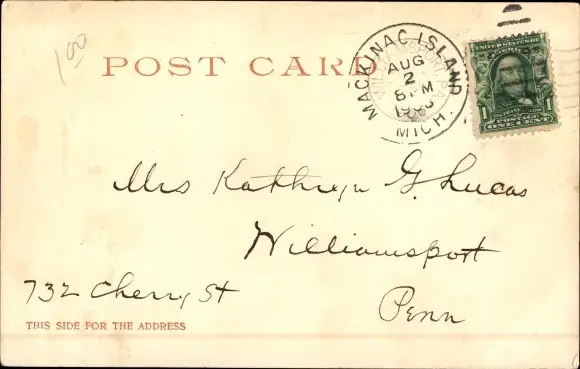 100
POST CARD
MACKINAC ISLAND
AUG
2
8 PM
MICH.
UNITED STATES OF
1 1
POSTAGE
ONE CENT
Mrs Kathryn G. Lucas
Williamsport
732 Cherry St
Penn
THIS SIDE FOR THE ADDRESS